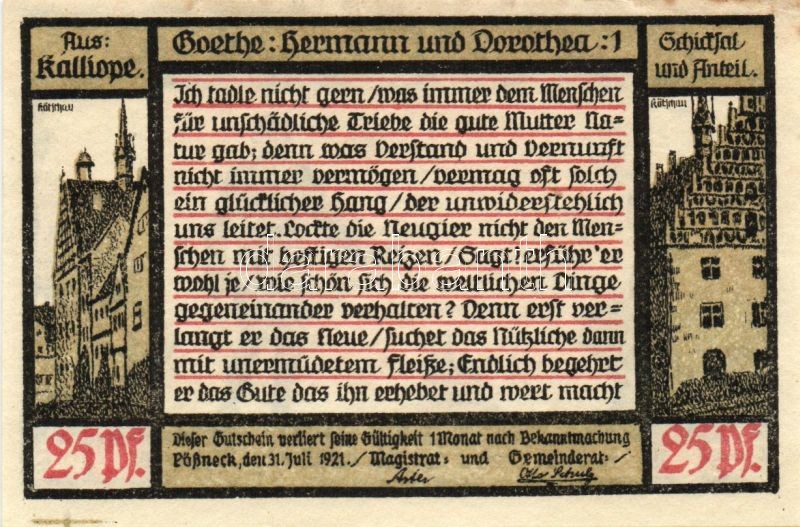 Aus:
Kalliope.
Goethe: Hermann und Dorothea: 1
Schicksal
und Anteil.
Kötschau
Kötschau
Ich tadle nicht gern/was immer dem Menschen
für unschädliche Triebe die gute Mutter Na=
tur gab; denn was Verstand und Vernunft
nicht immer vermögen/vermag oft solch
ein glücklicher Hang/der unwiderstehlich
uns leitet. Lockte die Neugier nicht den Men=
schen mit heftigen Reizen/Sagt! erführ'er
wohl je/wie schön sich die weltlichen Dinge
gegeneinander verhalten? Denn erst ver=
langt er das Neue/suchet das Nützliche dann
mit unermüdetem Fleiße; Endlich begehrt
er das Gute das ihn erhebet und wert macht
25 Pf.
Dieser Gutschein verliert seine Gültigkeit 1 Monat nach Bekanntmachung
Pößneck, den 31. Juli 1921. / Magistrat= und Gemeinderat: /
25 Pf.
darabanth